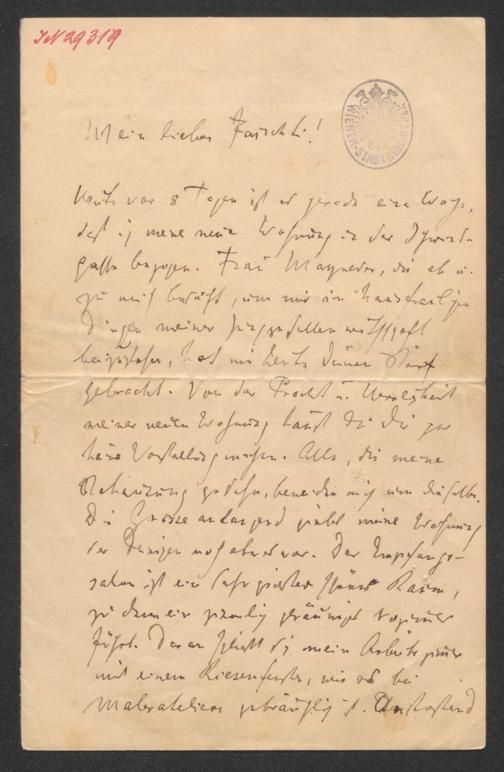 IN 29319
WIENER STADTBIBLIOTHEK
Mein lieber
Heute vor 8 Tagen ist es gerade eine Woche,
daß ich meine neue Wohnung in der
gasse bezogen. Frau Mayreder, die ab u.
zu mich besucht, um mir in hausfraulichen
Dingen meiner Junggesellenwirthschaft
beizustehen, hat mir heute deinen Brief
gebracht. Von der Pracht u. Herrlichkeit
meiner neuen Wohnung kannst du dir gar
keine Vorstellung machen. Alle, die meine
Behausung gesehen, beneiden mich um dieselbe.
Die Grösse anlangend giebt meine Wohnung
der Deinigen noch etwas vor. Der Empfangs-
salon ist ein sehr grosser Raum,
zu dem ein ziemlich geräumiges
führt. Daran schließt sich mein Arbeitszimmer
mit einem Riesenfenster, wie es bei
Malerateliers gebräuchlich ist. Anstossend